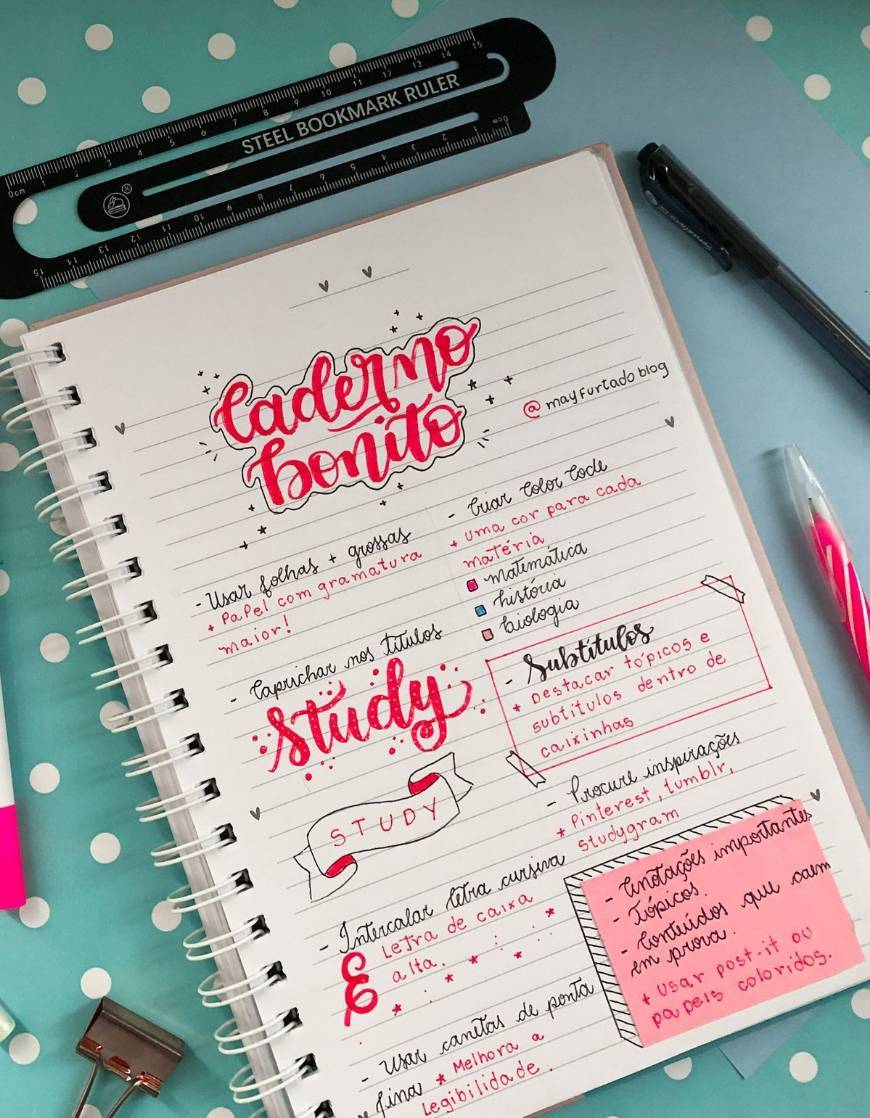 0cm 1 2 3 4 5 6 7 8 9 10 11 12 13 14 15
STEEL BOOKMARK RULER
0cm 1 2 3 4 5 6 7 8 9 10 11 12 13 14 15
caderno
bonito
@mayfurtadoblog
- Usar folhas + grossas
+ Papel com gramatura
maior!
- Criar Color Code
+ uma cor para cada
matéria
matemática
história
biologia
- Caprichar nos títulos
Study
STUDY
- Subtítulos
* Destacar tópicos e
subtítulos dentro de
caixinhas
- Procure inspirações
* Pinterest, tumblr,
studygram
- Intercalar letra cursiva
E Letra de caixa
alta.
- Anotações importantes
- Tópicos.
- Conteúdos que caem
em prova.
+ Usar post-it ou
papeis coloridos.
- Usar canetas de ponta
fina * Melhora a
legibilidade.